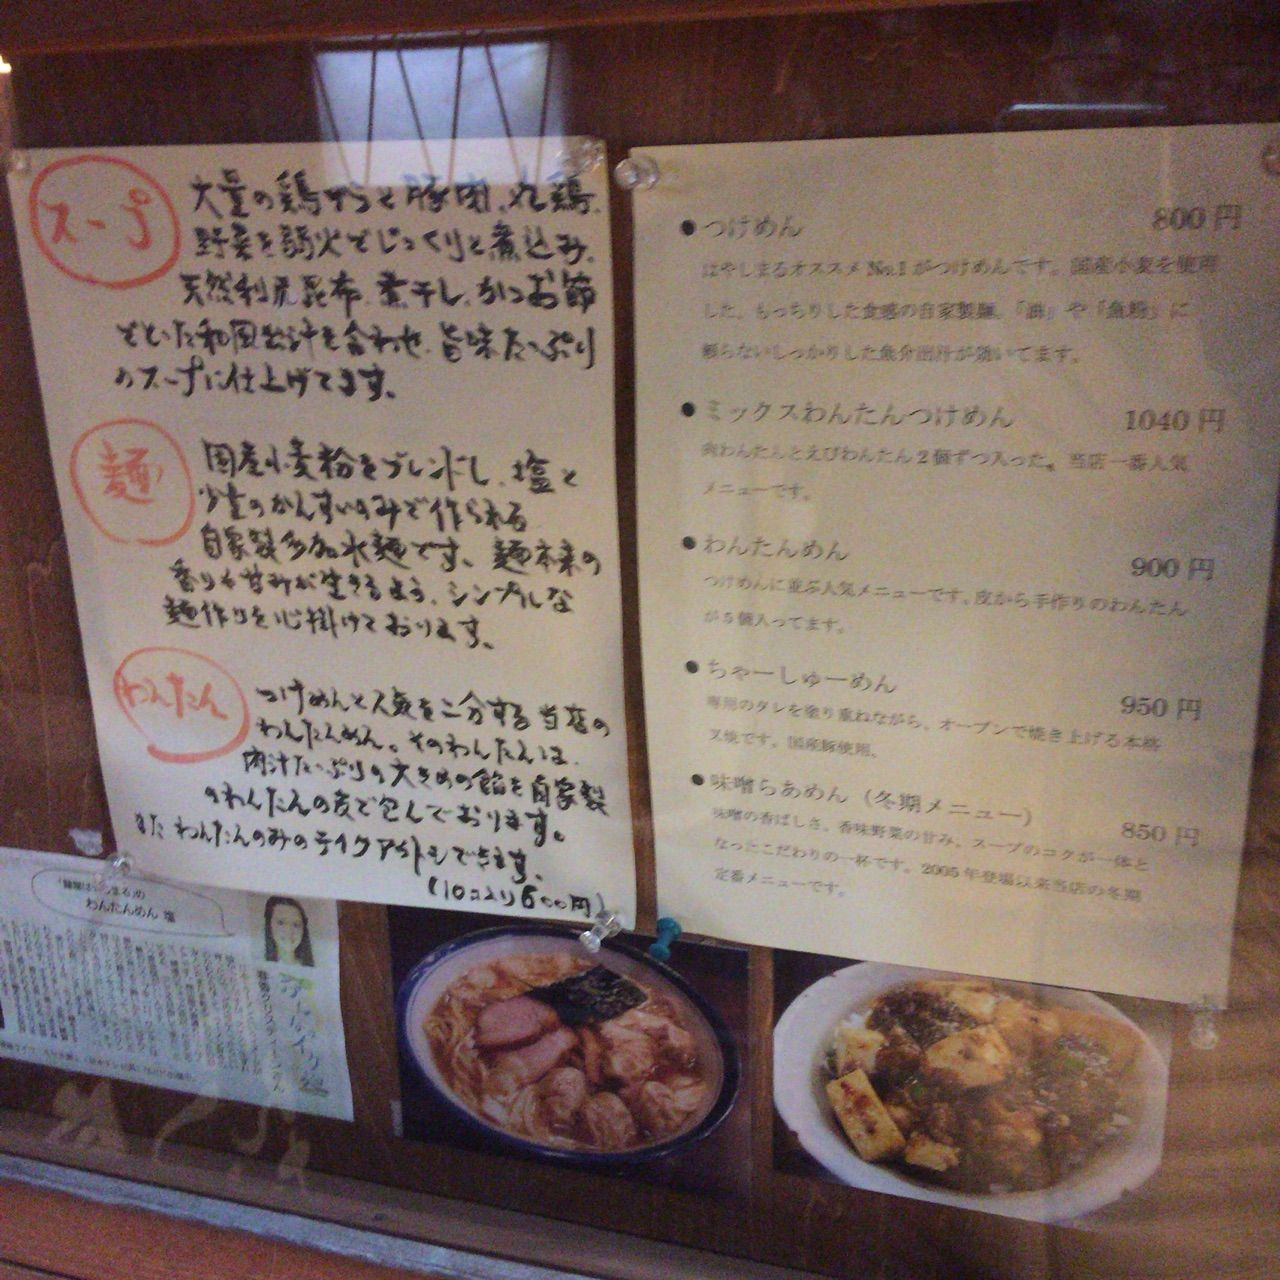 スープ
大量の鶏がらと豚肉、丸鶏、
野菜を弱火でじっくりと煮込み、
天然利尻昆布、煮干し、かつお節
といった和風出汁を合わせ、旨味たっぷり
のスープに仕上げてます。
麺
国産小麦粉をブレンドし、塩と
少量のかんすいのみで作られる
自家製多加水麺です。麺本来の
香りや甘みが生きるよう、シンプルな
麺作りを心掛けております。
わんたん
つけめんと人気を二分する当店の
わんたんめん。そのわんたんは、
肉汁たっぷりの大きめの餡を自家製
のわんたんの皮で包んでおります。
また わんたんのみのテイクアウトもできます。
(10コ入り600円)
●つけめん 800円
はやしまるオススメNo.1がつけめんです。国産小麦を使用
した、もっちりした食感の自家製麺。「油」や「魚粉」に
頼らないしっかりした魚介出汁が効いてます。
●ミックスわんたんつけめん 1040円
肉わんたんとえびわんたん2個ずつ入った、当店一番人気
メニューです。
●わんたんめん 900円
つけめんに並ぶ人気メニューです。皮から手作りのわんたん
が5個入ってます。
●ちゃーしゅーめん 950円
専用のタレを塗り重ねながら、オーブンで焼き上げる本格
叉焼です。国産豚使用、
●味噌らあめん（冬期メニュー） 850円
味噌の香ばしさ、香味野菜の甘み、スープのコクが一体と
なったこだわりの一杯です。2005年登場以来当店の冬期
定番メニューです。
「麺屋はやしまる」の
わんたんめん 塩